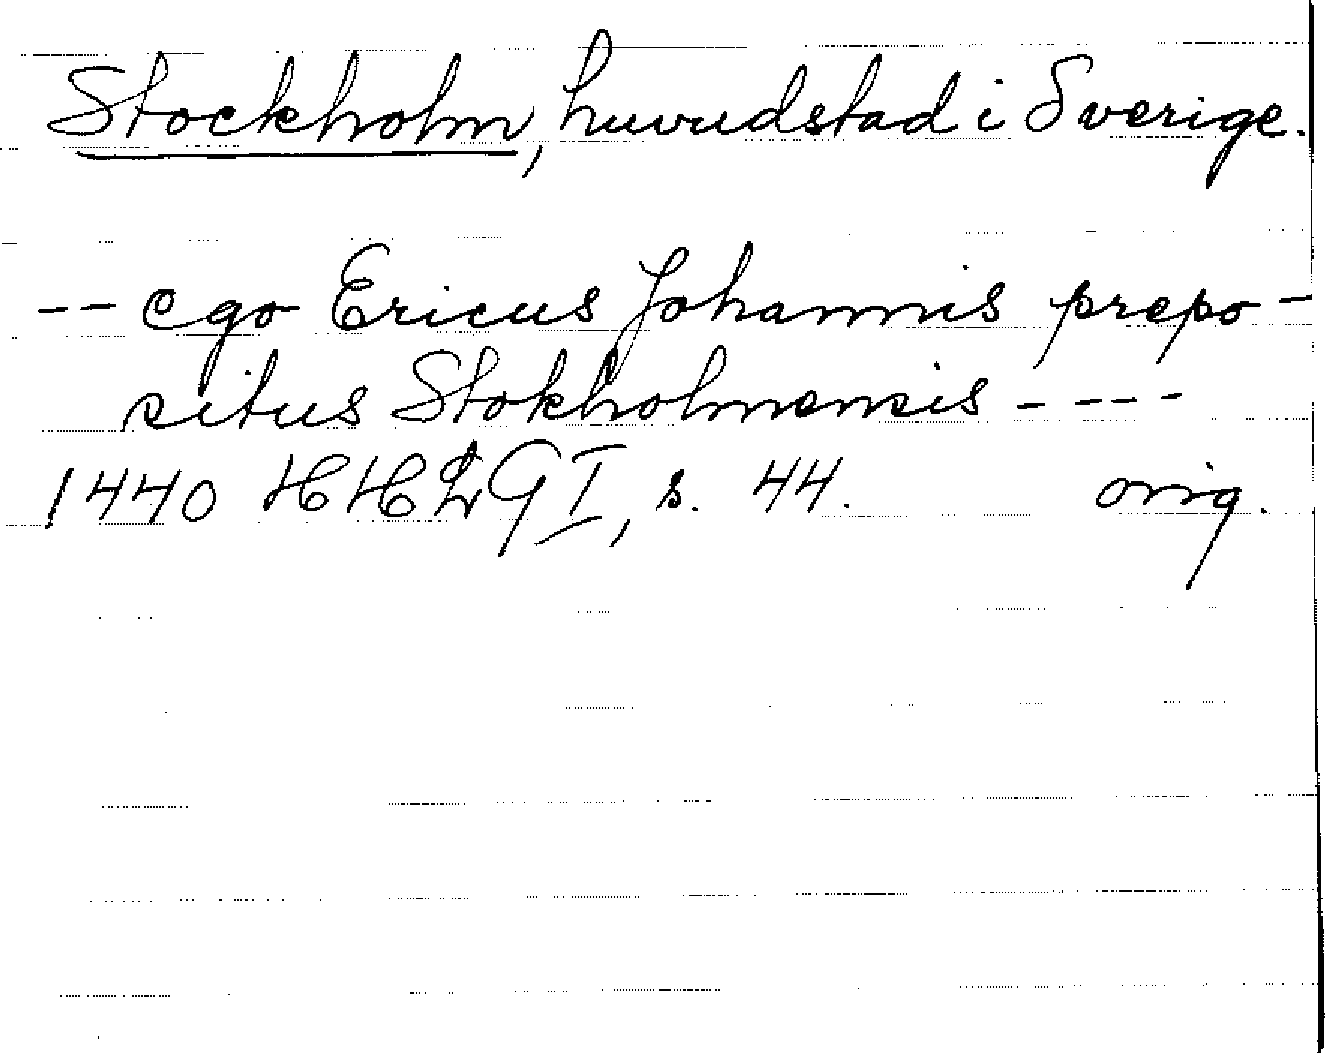 Stockholm, huvudstad i Sverige.
-- ego Ericus Johannis prepo-
situs Stokholmensis ----
1440 HHLG I, s. 44. orig.